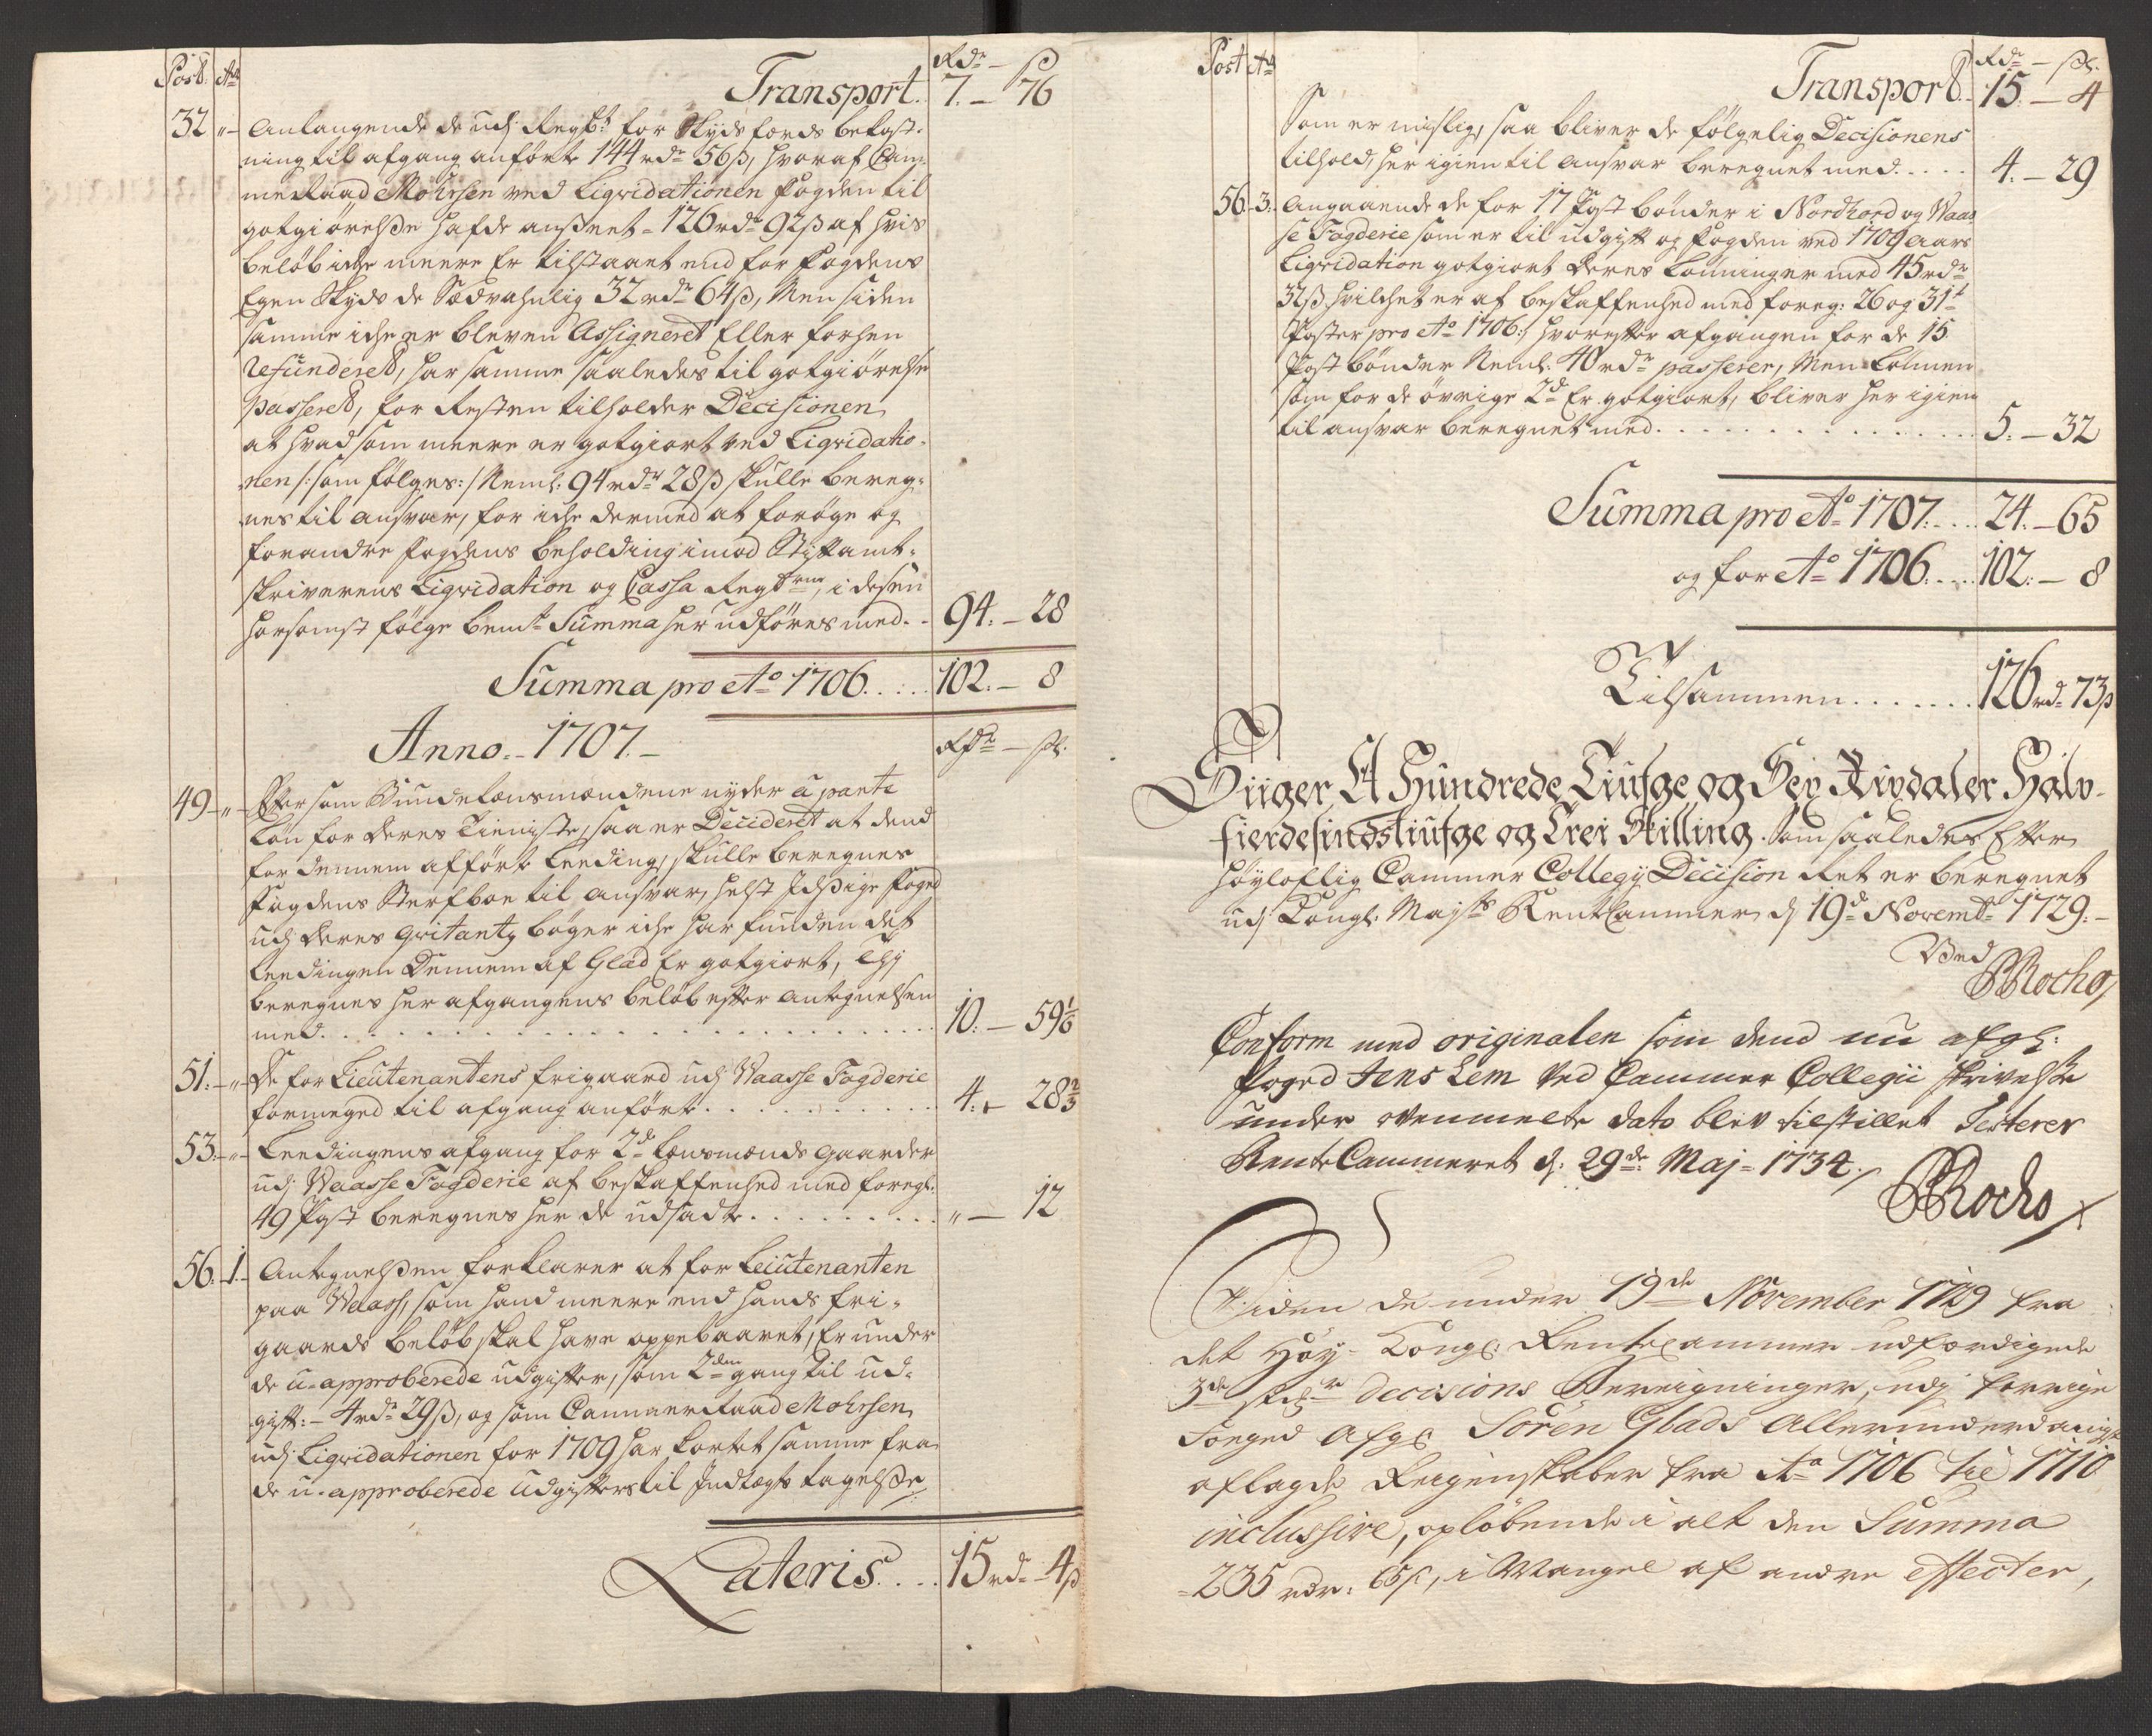 Post. No Rdr — ß
Transport. 7. — 76
32 „ Anlangende de udj Regbt for Skydsfords bekost-
ning til afgang anförte 144 rdr 56 ß, hvoraf Cam-
merRaad Mohrsen ved Liqvidationen Fogden til
gotgiörelse hafde anseet 126 rdr 92 ß af hvis
belöb iche meere Er tilstaaet end for Fogdens
Egen Skyds de Sædvahnlig 32 rdr 64 ß, Men siden
samme iche er bleven Assigneret Eller forhen
refunderet, har samme saaledes til gotgiörelse
passeret, for Resten tilholder Decisionen
at hvad som meere er gotgiort ved Liqvidatio-
nen /: som fölges: / Neml: 94 rdr 28 ß skulle bereg-
nes til ansvar, for iche dermed at foröge og
forandre Fogdens beholding imod Stiftamt-
skriverens Liqvidation og Cassa Regbrne, i desen
horsomst fölge bemte Summa her udföres med.. 94. — 28
Summa pro Ao 1706..... 102. — 8
Anno. 1707. Rdr — ß.
49 „ Efter som Bundelensmændene nyder a parte
Lön for deres Tieniste, saa er Decideret at dend
for dennem afförte Leeding, skulle beregnes
Fogdens Sterfboe til ansvar, helst Itzige Foged
udj deres Qvitantz böger iche har funden det
Leedingen Dennem af Glad Er gotgiort, Thj
beregnes her afgangens belöb efter antegnelsen
med................ 10. — 59 1/6
51. „ De for Lieutenantens frigaard udj Waasse Fogderie
formeged til afgang anförte........... 4. — 28 2/3
53. „ Leedingens afgang for 2de Lensmænds Gaarder
udj Waasse Fogderie af beskaffenhed med foregl:
49 Post beregnes her de udsadte......... „ — 12
56. 1. Antegnelsen forklarer at for Leiutenanten
paa Waass, som hand meere end hands fri-
gaards belöb skal have oppebaaret, Er under
de u-approberede udgifter, som 2den gang til ud-
gift: 4 rdr 29 ß, og som CammerRaad Mohrsen
udj Liqvidationen for 1709 har kortet samme fra
de u-approberede udgifters til Indtægts tagelse
Lateris.... 15 rdr 4 ß
Post No Rdr — ß.
Transport. 15. — 4
Som er mislig, saa bliver de fölgelig Decisionens
tilhold, her igien til ansvar beregnet med..... 4. — 29
56. 3. Angaaende de for 17 Post bönder i Nordhord og Waas-
se Fogderie som er til udgift og Fogden ved 1709 Aars
Liqvidation gotgiort deres Lönninger med 45 rdr
32 ß hvilchet er af beskaffenhed med foreg: 26 og 31te
Poster pro Ao 1706:, hvorefter afgangen for de 15
Post bönder Neml: 40 rdr passerer, Men Lönnen
som for de övrige 2de Er gotgiort, bliver her igien
til ansvar beregnet med............. 5. — 32
Summa pro Ao 1707..... 24. — 65
og for Ao 1706.... 102. — 8
Tilsammen....... 126 rdr 73 ß
Siiger Et Hundrede Tiufge og Sex Rixdaler Halv-
fierdesindstiufge og Trei Skilling. Som saaledes Efter
höyloflig Cammer Collegij Decision Ret er beregnet
udj Kongl: Majts RentCammer d 19de Novembr 1729.
Ved
Rocho
Conform med originalen som dend nu afg:
foged Jens Lem ved Cammer Collegii skrivelse
under ovenmelte dato blev tilstillet Testerer
RenteCammeret d: 29de Maj 1734.
Rocho
Siden de under 19de November 1729 fra
det Höy-Kongl: RenteCammer udfærdigede
3de Decisions Bereigninger, udj forrige
Foeged Afg: Sören Glads Allerunderdanigst
aflagde Regenskaber fra Ao 1706 til 1710
inclussive, oplöbende i alt den Summa
235 rdr: 65 ß, i Mangel af andre effecter,